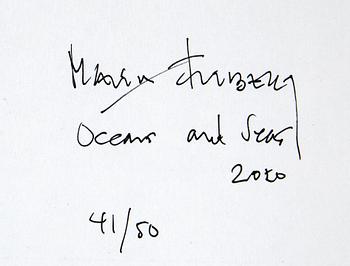 Maria Friberg
Oceans and Seas
2010
41/50